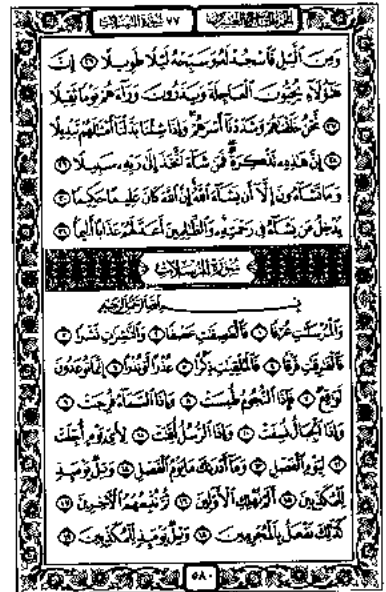 الجزء التاسع والعشرون ٧٧ سورة المرسلات
وَمِنَ ٱلَّيْلِ فَٱسْجُدْ لَهُۥ وَسَبِّحْهُ لَيْلًا طَوِيلًا ٢٦ إِنَّ
هَٰٓؤُلَآءِ يُحِبُّونَ ٱلْعَاجِلَةَ وَيَذَرُونَ وَرَآءَهُمْ يَوْمًا ثَقِيلًا
٢٧ نَّحْنُ خَلَقْنَٰهُمْ وَشَدَدْنَآ أَسْرَهُمْ وَإِذَا شِئْنَا بَدَّلْنَآ أَمْثَٰلَهُمْ تَبْدِيلًا
٢٨ إِنَّ هَٰذِهِۦ تَذْكِرَةٌ فَمَن شَآءَ ٱتَّخَذَ إِلَىٰ رَبِّهِۦ سَبِيلًا ٢٩
وَمَا تَشَآءُونَ إِلَّآ أَن يَشَآءَ ٱللَّهُ إِنَّ ٱللَّهَ كَانَ عَلِيمًا حَكِيمًا ٣٠
يُدْخِلُ مَن يَشَآءُ فِى رَحْمَتِهِۦ وَٱلظَّٰلِمِينَ أَعَدَّ لَهُمْ عَذَابًا أَلِيمًۢا ٣١
سُورَةُ المُرْسَلَات
بِسْمِ ٱللَّهِ ٱلرَّحْمَٰنِ ٱلرَّحِيمِ
وَٱلْمُرْسَلَٰتِ عُرْفًا ١ فَٱلْعَٰصِفَٰتِ عَصْفًا ٢ وَٱلنَّٰشِرَٰتِ نَشْرًا ٣
فَٱلْفَٰرِقَٰتِ فَرْقًا ٤ فَٱلْمُلْقِيَٰتِ ذِكْرًا ٥ عُذْرًا أَوْ نُذْرًا ٦ إِنَّمَا تُوعَدُونَ
لَوَٰقِعٌ ٧ فَإِذَا ٱلنُّجُومُ طُمِسَتْ ٨ وَإِذَا ٱلسَّمَآءُ فُرِجَتْ ٩
وَإِذَا ٱلْجِبَالُ نُسِفَتْ ١٠ وَإِذَا ٱلرُّسُلُ أُقِّتَتْ ١١ لِأَىِّ يَوْمٍ أُجِّلَتْ
١٢ لِيَوْمِ ٱلْفَصْلِ ١٣ وَمَآ أَدْرَىٰكَ مَا يَوْمُ ٱلْفَصْلِ ١٤ وَيْلٌ يَوْمَئِذٍ
لِّلْمُكَذِّبِينَ ١٥ أَلَمْ نُهْلِكِ ٱلْأَوَّلِينَ ١٦ ثُمَّ نُتْبِعُهُمُ ٱلْـَٔاخِرِينَ ١٧
كَذَٰلِكَ نَفْعَلُ بِٱلْمُجْرِمِينَ ١٨ وَيْلٌ يَوْمَئِذٍ لِّلْمُكَذِّبِينَ ١٩
٥٨٠